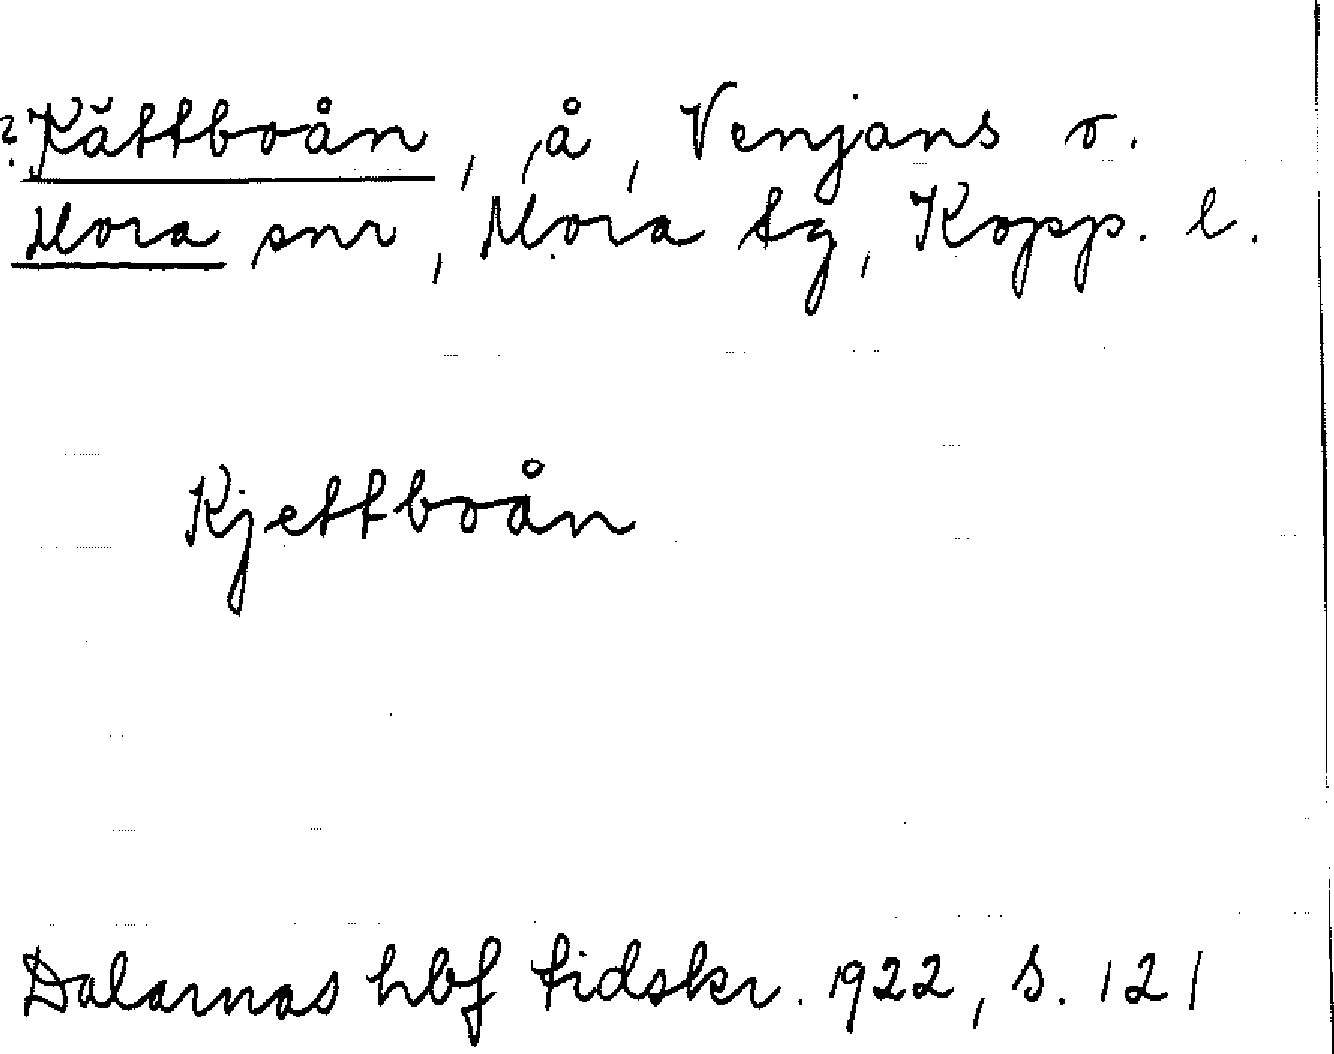 ? Kättboån, å, Venjans o.
Mora snr, Mora tg, Kopp. l.
Kjettboån
Dalarnas hbf tidskr. 1922, s. 121